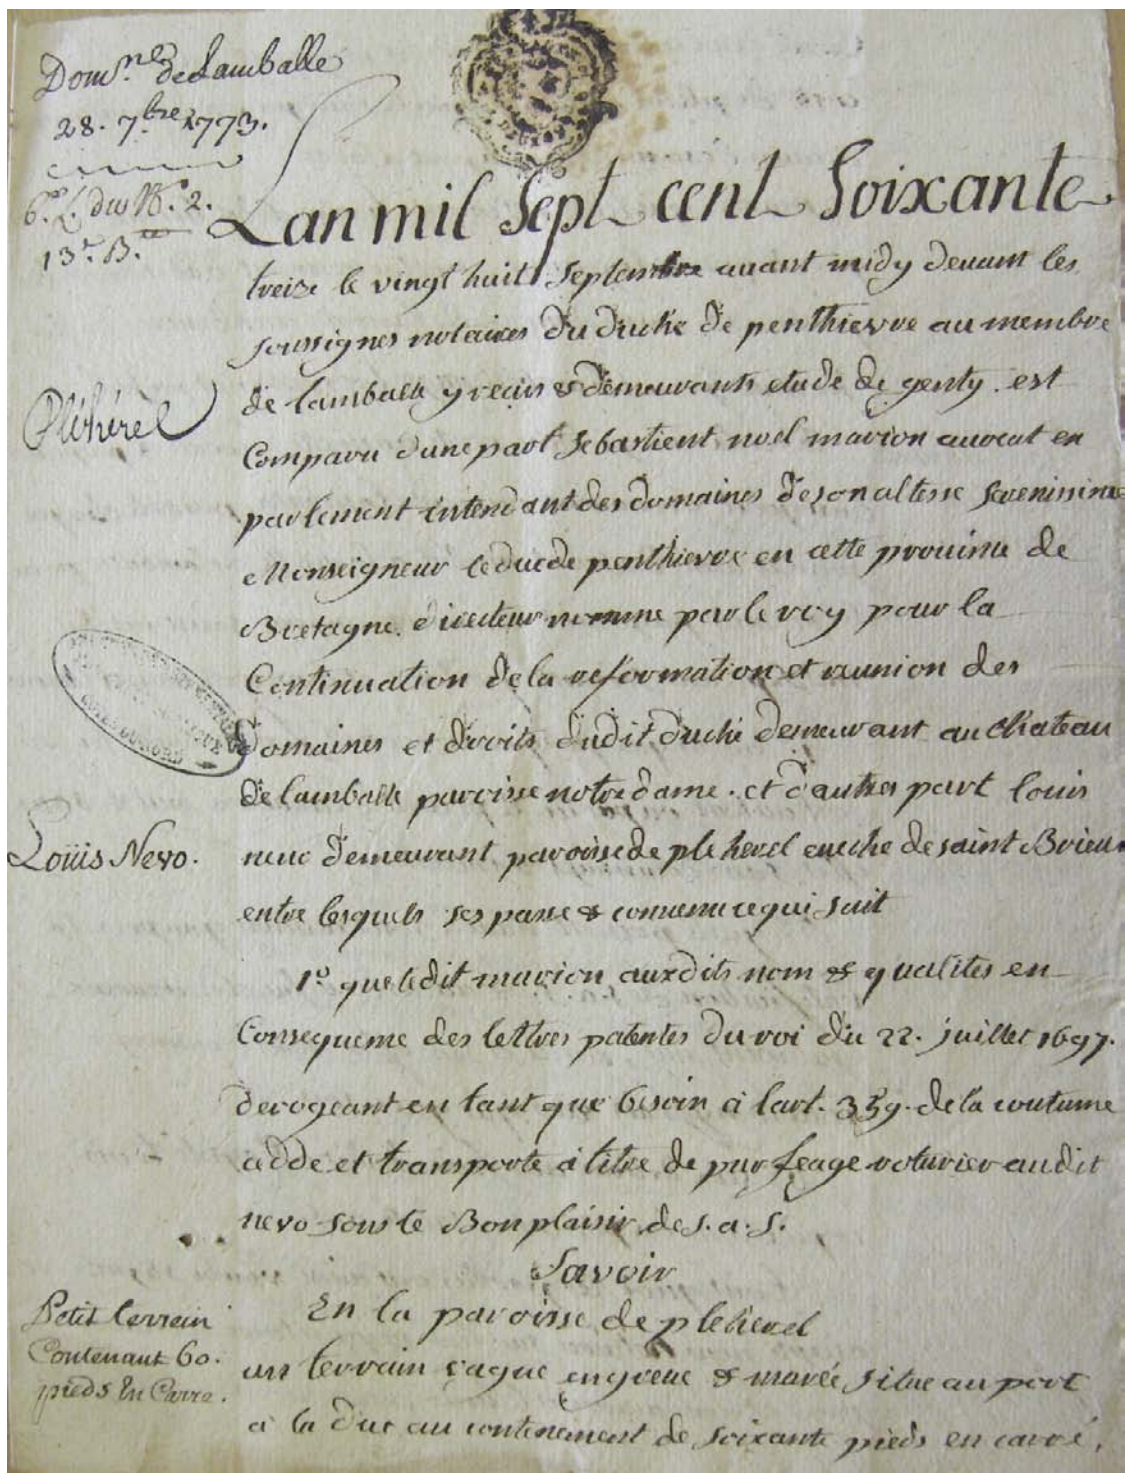 Dom.ne de Lamballe
28. 7.bre 1773.
6.e L. du N.o 2.
13.r B.
Lan mil Sept cent Soixante
treize le vingt huit Septembre auant midy deuant les
soussignes notaires du duché de penthievre au membre
de lamballe y recus & demeurants etude de genty. est
Comparu dune part Sebastient noel marion auocat en
parlement intendant des domaines de son altesse serenissime
Monseigneur le duc de penthievre en cette prouince de
Bretagne. directeur nomme par le roy pour la
Continuation de la reformation et reunion des
Domaines et droits dudit duché demeurant au chateau
de lamballe paroisse notre dame. et d'autres part louis
neuo demeurant paroisse de pleherel eueche de saint Brieuc
entre lesquels ses passe & conuenu ce qui suit
1.o que ledit marion auxdits nom & qualites en
Consequence des lettres patentes du roi du 22. juillet 1697.
derogeant en tant que besoin à lart. 359. de la coutume
cedde et transporte à titre de pur feage roturier audit
nevo sous le Bon plaisir de s. a. s.
Savoir
En la paroisse de pleherel
un terrain vague en greue & marée situe au port
à la duc au contenement de soixante pieds en carré,
Pléhérel
Loüis Nevo.
Petit terrein
Contenant 60.
pieds En Carre.